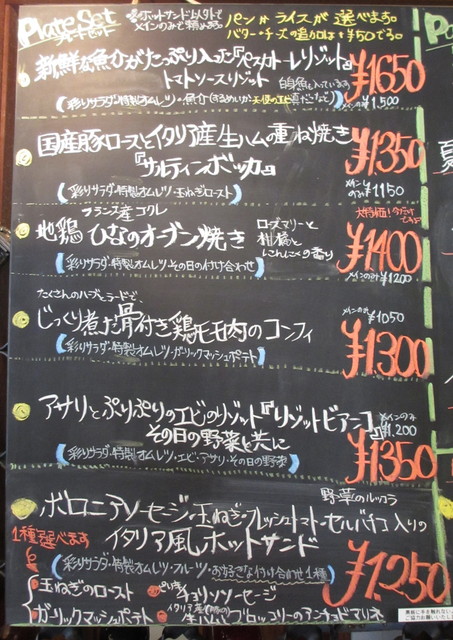 Plate Set
プレートセット
ホットサンド以外で
メインのみで頼めます。
パン or ライスが選べます。
バター・チーズの追加は+¥50です。
新鮮な魚介がたっぷり入った『ペスカトーレリゾット』
トマトソースリゾット
白身魚も入っています
¥1650
(彩りサラダ・特製オムレツ・魚介
天使のエビ
メインのみ ¥1.500
国産豚ロースとイタリア産生ハムの重ね焼き
『サルティンボッカ』
¥1.350
(彩りサラダ・特製オムレツ・玉ねぎロースト)
メインのみ ¥1150
フランス産コクレ
地鶏ひなのオーブン焼き
ローズマリーと
柑橘と
にんにくの香り
大特価!
¥1400
(彩りサラダ・特製オムレツ・その日の付け合わせ)
メインのみ ¥1200
たくさんのハーブとラードで、
じっくり煮た骨付き鶏モモ肉のコンフィ
メインのみ ¥1050
¥1300
(彩りサラダ・特製オムレツ・ガーリックマッシュポテト)
アサリとぷりぷりのエビのリゾット『リゾットビアンコ』
その日の野菜と共に
メインのみ
¥1.200
¥1350
(彩りサラダ・特製オムレツ・エビ・アサリ・その日の野菜)
野菜のルッコラ
ボロニアソーセージ・玉ねぎ・フレッシュトマト・セルバチコ入りの
イタリア風ホットサンド
¥1.250
1種選べます
(彩りサラダ・特製オムレツ・フルーツ・お好きな付け合わせ1種)
・玉ねぎのロースト
・ピリ辛チョリソソーセージ
・ガーリックマッシュポテト
・生ハムとブロッコリーのアンチョビマリネ
黒板に手を触れない
ご協力お願いいたし